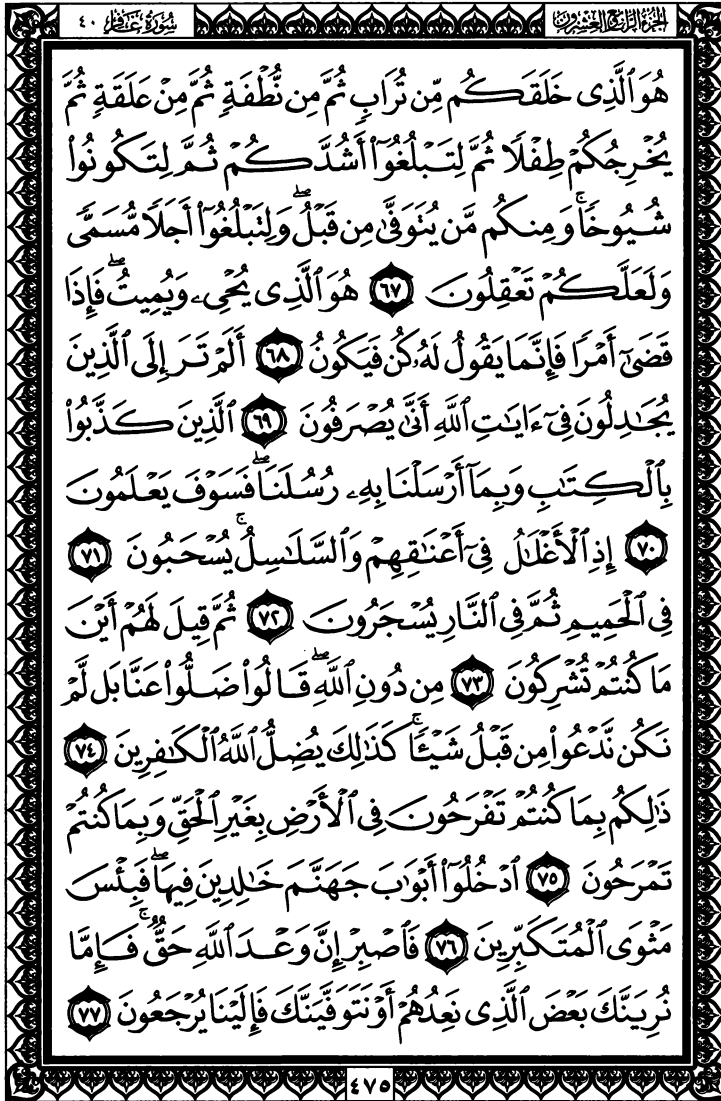 الجزء الرابع والعشرون
سورة غافر ٤٠
هُوَ ٱلَّذِى خَلَقَكُم مِّن تُرَابٍ ثُمَّ مِن نُّطْفَةٍ ثُمَّ مِنْ عَلَقَةٍ ثُمَّ
يُخْرِجُكُمْ طِفْلًا ثُمَّ لِتَبْلُغُوٓا۟ أَشُدَّكُمْ ثُمَّ لِتَكُونُوا۟
شُيُوخًا ۚ وَمِنكُم مَّن يُتَوَفَّىٰ مِن قَبْلُ ۖ وَلِتَبْلُغُوٓا۟ أَجَلًا مُّسَمًّى
وَلَعَلَّكُمْ تَعْقِلُونَ ٦٧ هُوَ ٱلَّذِى يُحْىِۦ وَيُمِيتُ ۖ فَإِذَا
قَضَىٰٓ أَمْرًا فَإِنَّمَا يَقُولُ لَهُۥ كُن فَيَكُونُ ٦٨ أَلَمْ تَرَ إِلَى ٱلَّذِينَ
يُجَٰدِلُونَ فِىٓ ءَايَٰتِ ٱللَّهِ أَنَّىٰ يُصْرَفُونَ ٦٩ ٱلَّذِينَ كَذَّبُوا۟
بِٱلْكِتَٰبِ وَبِمَآ أَرْسَلْنَا بِهِۦ رُسُلَنَا ۖ فَسَوْفَ يَعْلَمُونَ
٧٠ إِذِ ٱلْأَغْلَٰلُ فِىٓ أَعْنَٰقِهِمْ وَٱلسَّلَٰسِلُ ۚ يُسْحَبُونَ ٧١
فِى ٱلْحَمِيمِ ثُمَّ فِى ٱلنَّارِ يُسْجَرُونَ ٧٢ ثُمَّ قِيلَ لَهُمْ أَيْنَ
مَا كُنتُمْ تُشْرِكُونَ ٧٣ مِن دُونِ ٱللَّهِ ۖ قَالُوا۟ ضَلُّوا۟ عَنَّا بَل لَّمْ
نَكُن نَّدْعُوا۟ مِن قَبْلُ شَيْـًٔا ۚ كَذَٰلِكَ يُضِلُّ ٱللَّهُ ٱلْكَٰفِرِينَ ٧٤
ذَٰلِكُم بِمَا كُنتُمْ تَفْرَحُونَ فِى ٱلْأَرْضِ بِغَيْرِ ٱلْحَقِّ وَبِمَا كُنتُمْ
تَمْرَحُونَ ٧٥ ٱدْخُلُوٓا۟ أَبْوَٰبَ جَهَنَّمَ خَٰلِدِينَ فِيهَا ۖ فَبِئْسَ
مَثْوَى ٱلْمُتَكَبِّرِينَ ٧٦ فَٱصْبِرْ إِنَّ وَعْدَ ٱللَّهِ حَقٌّ ۚ فَإِمَّا
نُرِيَنَّكَ بَعْضَ ٱلَّذِى نَعِدُهُمْ أَوْ نَتَوَفَّيَنَّكَ فَإِلَيْنَا يُرْجَعُونَ ٧٧
٤٧٥